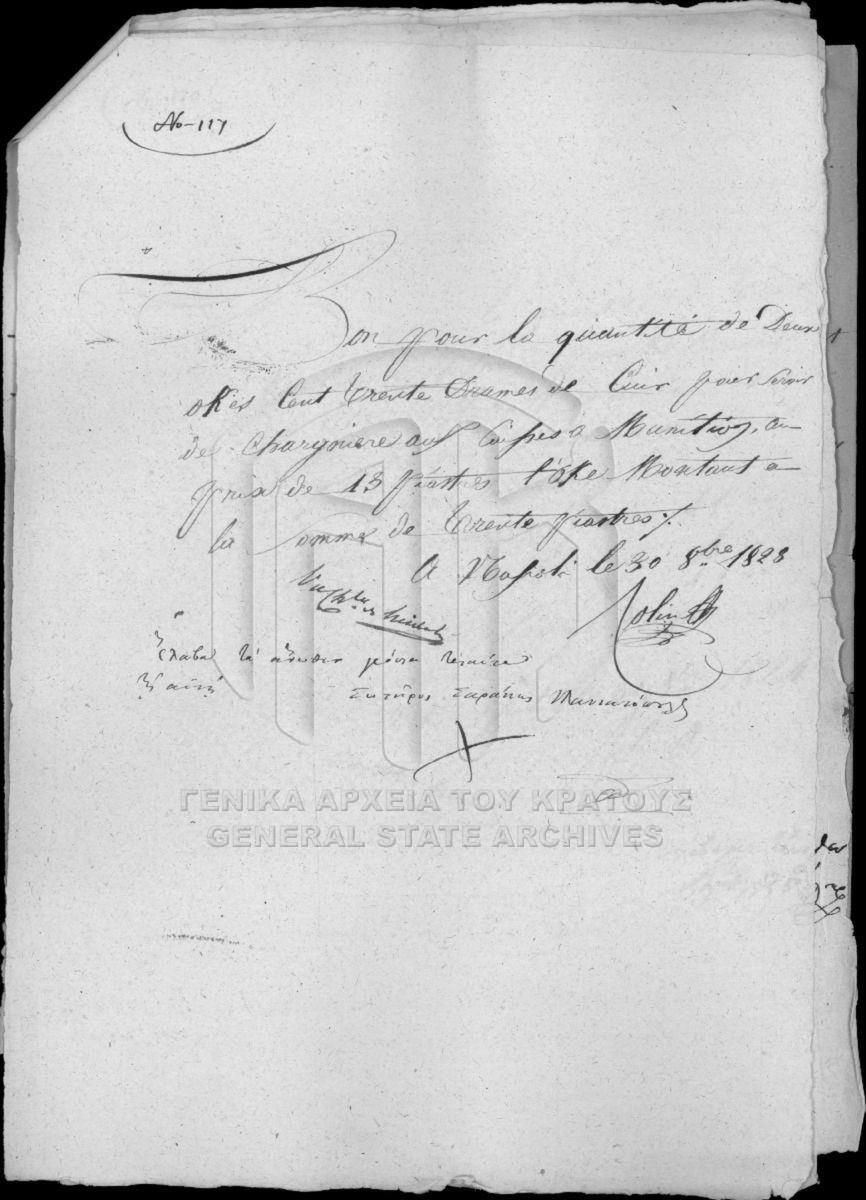 No-117
Bon pour la quantité de Deux
okes Cent trente Drames de Cuir pour servir
de Chargniere aux Caisses a Munition, au
prix de 13 piastres l'oke Montant a
la somme de trente piastres
A Napoli le 30 8bre 1828
Colin
ἔλαβα τὰ ἄνωθεν γρόσια τριάντα
Σωτήρος Σαράντος
ΓΕΝΙΚΑ ΑΡΧΕΙΑ ΤΟΥ ΚΡΑΤΟΥΣ
GENERAL STATE ARCHIVES